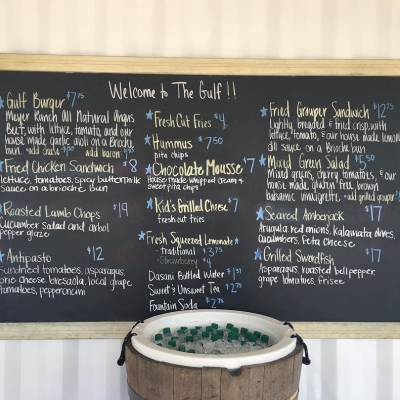 Welcome to The Gulf!!
Gulf Burger $7.75
Meyer Ranch All Natural Angus
Beef, with lettuce, tomato, and our
house made garlic aioli on a Brioche
bun. add bacon
Fried Chicken Sandwich $8
lettuce, tomatoes, spicy buttermilk
sauce on a brioche bun
Roasted Lamb Chops $19
Cucumber salad and arbol
pepper glaze
Antipasto $12
Sundried tomatoes, asparagus,
bresaola, local grape
tomatoes, pepperoncini
Fresh Cut Fries $4
Hummus $7.50
pita chips
Chocolate Mousse $7
house made whipped cream +
sweet pita chips
Kid's Grilled Cheese $7
fresh cut fries
Fresh Squeezed Lemonade
- traditional $3.75
- Strawberry $4
Dasani Bottled Water
Sweet & Unsweet Tea $2.75
Fountain Soda $2.75
Fried Grouper Sandwich $12.75
Lightly breaded & fried crisp, with
lettuce, tomato, & our house made lemon
dill sauce on a Brioche
bun
Mixed Green Salad $5.50
Mixed greens, cherry tomatoes, & our
house made, gluten free, brown
Balsamic vinaigrette. add grilled grouper
Seared Amberjack $17
Arugula, red onions, Kalamata olives,
cucumbers, feta cheese
Grilled Swordfish $17
Asparagus, roasted bell pepper,
grape tomatoes, frisee